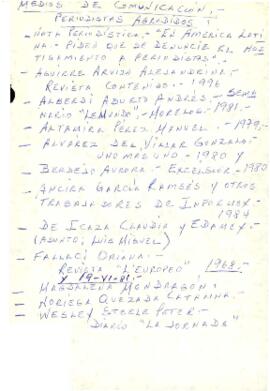 MEDIOS DE COMUNICACIÓN;
PERIODISTAS AGREDIDOS:
- NOTA PERIODÍSTICA.- "EN AMÉRICA LATI
NA.- PIDEN QUE SE DENUNCIE EL HOS
TIGAMIENTO A PERIODISTAS".-
- AGUIRRE ALEJANDRINA.-
REVISTA CONTENIDO.- 1996
- ALBERDI ADUERTO ANDRÉS.- SEMA
NARIO "LEMUNDO".- MORELOS.- 1981.-
- ALTAMIRA PÉREZ MANUEL.- 1979.-
- ALVAREZ DEL VILLAR GONZALO.-
UNOMASUNO - 1980 Y
- BERDEJO AURORA.- EXCELSIOR.- 1980
- ANCIRA GARCÍA RAMSÉS Y OTROS
TRABAJADORES DE INFORMEX.-
1984
- DE ICAZA CLAUDIA Y EDAMEX.-
(ASUNTO; LUIS MIGUEL)
- FALLACI ORIANA.-
REVISTA "L'EUROPEO" 1968.-
Y 19-VI-81.-
- MAGDALENA MONDRAGÓN.-
- NORIEGA QUEZADA CATALINA.-
- WESLEY STEELE PETER.-
DIARIO "LA JORNADA"